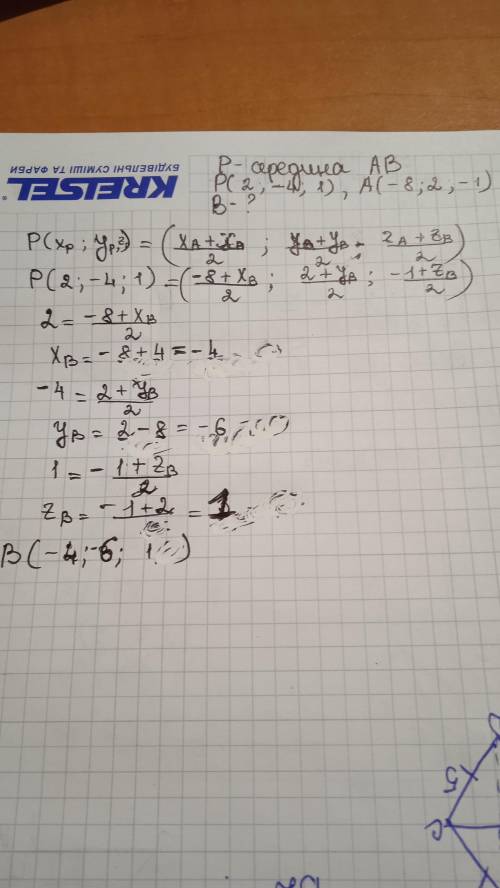 БУДІВЕЛЬНІ СУМІШІ ТА ФАРБИ
KREISEL
P - середина AB
P(2; -4; 1), A(-8; 2, -1)
B - ?
P(xp; yp; z) = (xA + xB / 2; yA + yB / 2; zA + zB / 2)
P(2; -4; 1) = (-8 + xB / 2; 2 + yB / 2; -1 + zB / 2)
2 = -8 + xB / 2
xB = -8 + 4 = -4
-4 = 2 + yB / 2
yB = 2 - 8 = -6
1 = - 1 + zB / 2
zB = -1 + 2 = 1
B(-4; -6; 1)
5
C